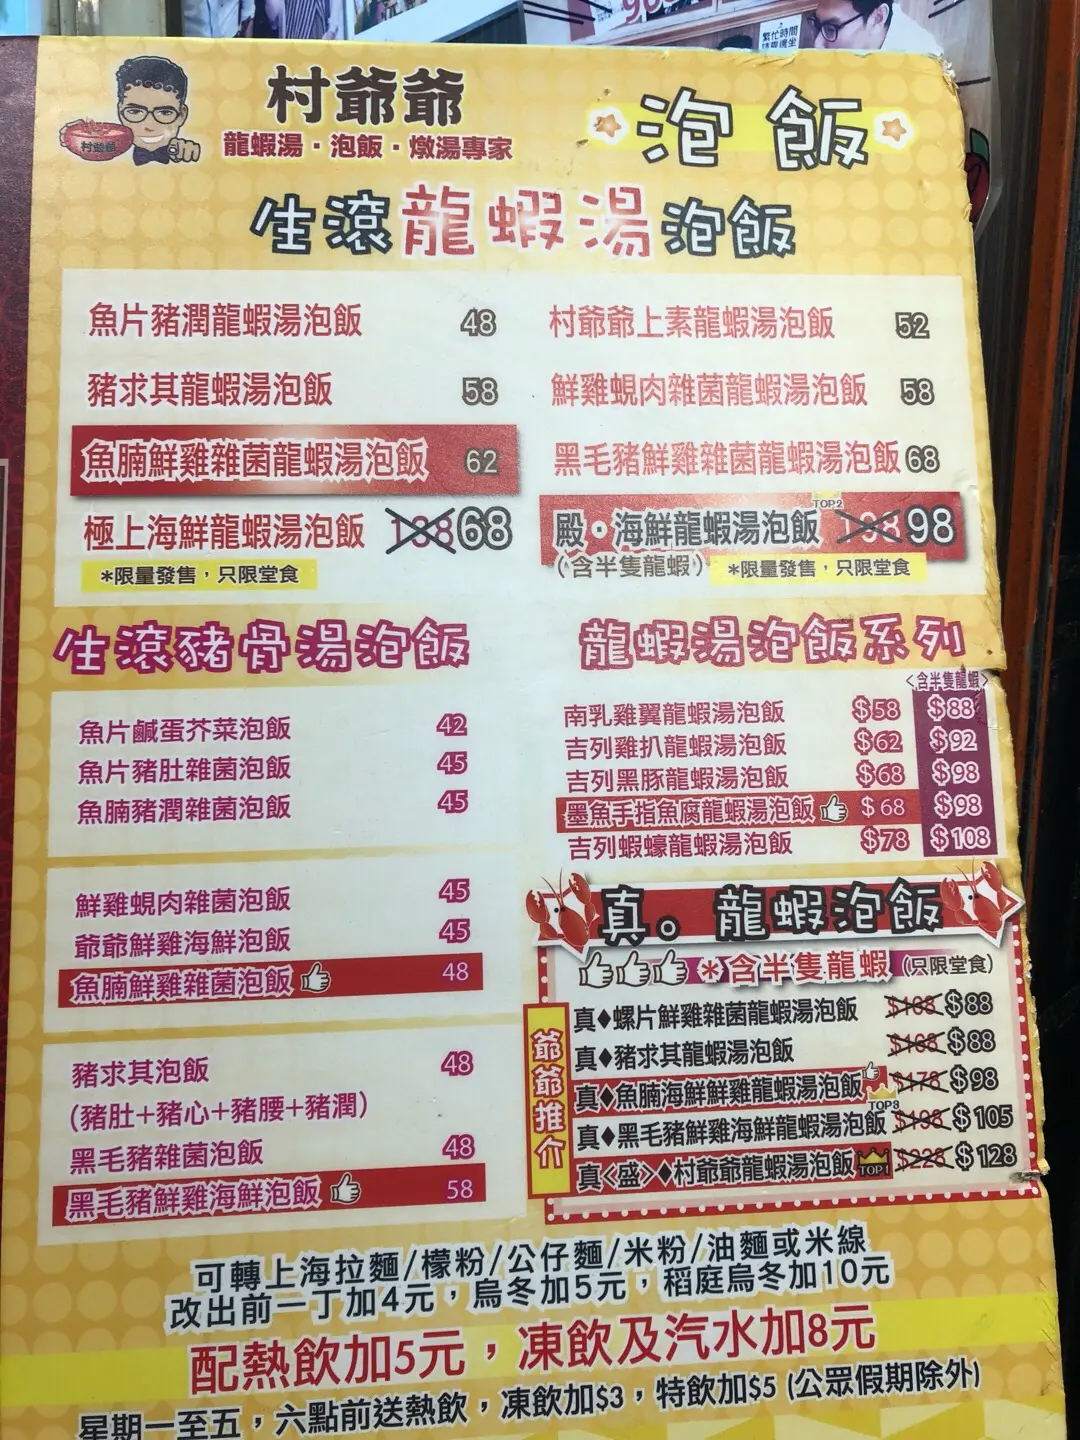 繁忙時間
村爺爺
龍蝦湯・泡飯・燉湯專家
村爺爺
泡飯
生滾龍蝦湯泡飯
魚片豬潤龍蝦湯泡飯 48
豬求其龍蝦湯泡飯 58
魚腩鮮雞雜菌龍蝦湯泡飯 62
極上海鮮龍蝦湯泡飯 108 68
*限量發售，只限堂食
村爺爺上素龍蝦湯泡飯 52
鮮雞蜆肉雜菌龍蝦湯泡飯 58
黑毛豬鮮雞雜菌龍蝦湯泡飯 68
殿・海鮮龍蝦湯泡飯 TOP2 198 98
(含半隻龍蝦) *限量發售，只限堂食
生滾豬骨湯泡飯
魚片鹹蛋芥菜泡飯 42
魚片豬肚雜菌泡飯 45
魚腩豬潤雜菌泡飯 45
鮮雞蜆肉雜菌泡飯 45
爺爺鮮雞海鮮泡飯 45
魚腩鮮雞雜菌泡飯 48
豬求其泡飯 48
(豬肚+豬心+豬腰+豬潤)
黑毛豬雜菌泡飯 48
黑毛豬鮮雞海鮮泡飯 58
龍蝦湯泡飯系列
<含半隻龍蝦>
南乳雞翼龍蝦湯泡飯 $58 $88
吉列雞扒龍蝦湯泡飯 $62 $92
吉列黑豚龍蝦湯泡飯 $68 $98
墨魚手指魚腐龍蝦湯泡飯 $68 $98
吉列蝦蠔龍蝦湯泡飯 $78 $108
真。龍蝦泡飯
*含半隻龍蝦 (只限堂食)
爺爺推介
真♦螺片鮮雞雜菌龍蝦湯泡飯 $168 $88
真♦豬求其龍蝦湯泡飯 $168 $88
真♦魚腩海鮮鮮雞龍蝦湯泡飯 TOP3 $178 $98
真♦黑毛豬鮮雞海鮮龍蝦湯泡飯 $198 $105
真<盛>♦村爺爺龍蝦湯泡飯 TOP1 $228 $128
可轉上海拉麵/檬粉/公仔麵/米粉/油麵或米線
改出前一丁加4元，烏冬加5元，稻庭烏冬加10元
配熱飲加5元，凍飲及汽水加8元
星期一至五，六點前送熱飲，凍飲加$3，特飲加$5 (公眾假期除外)